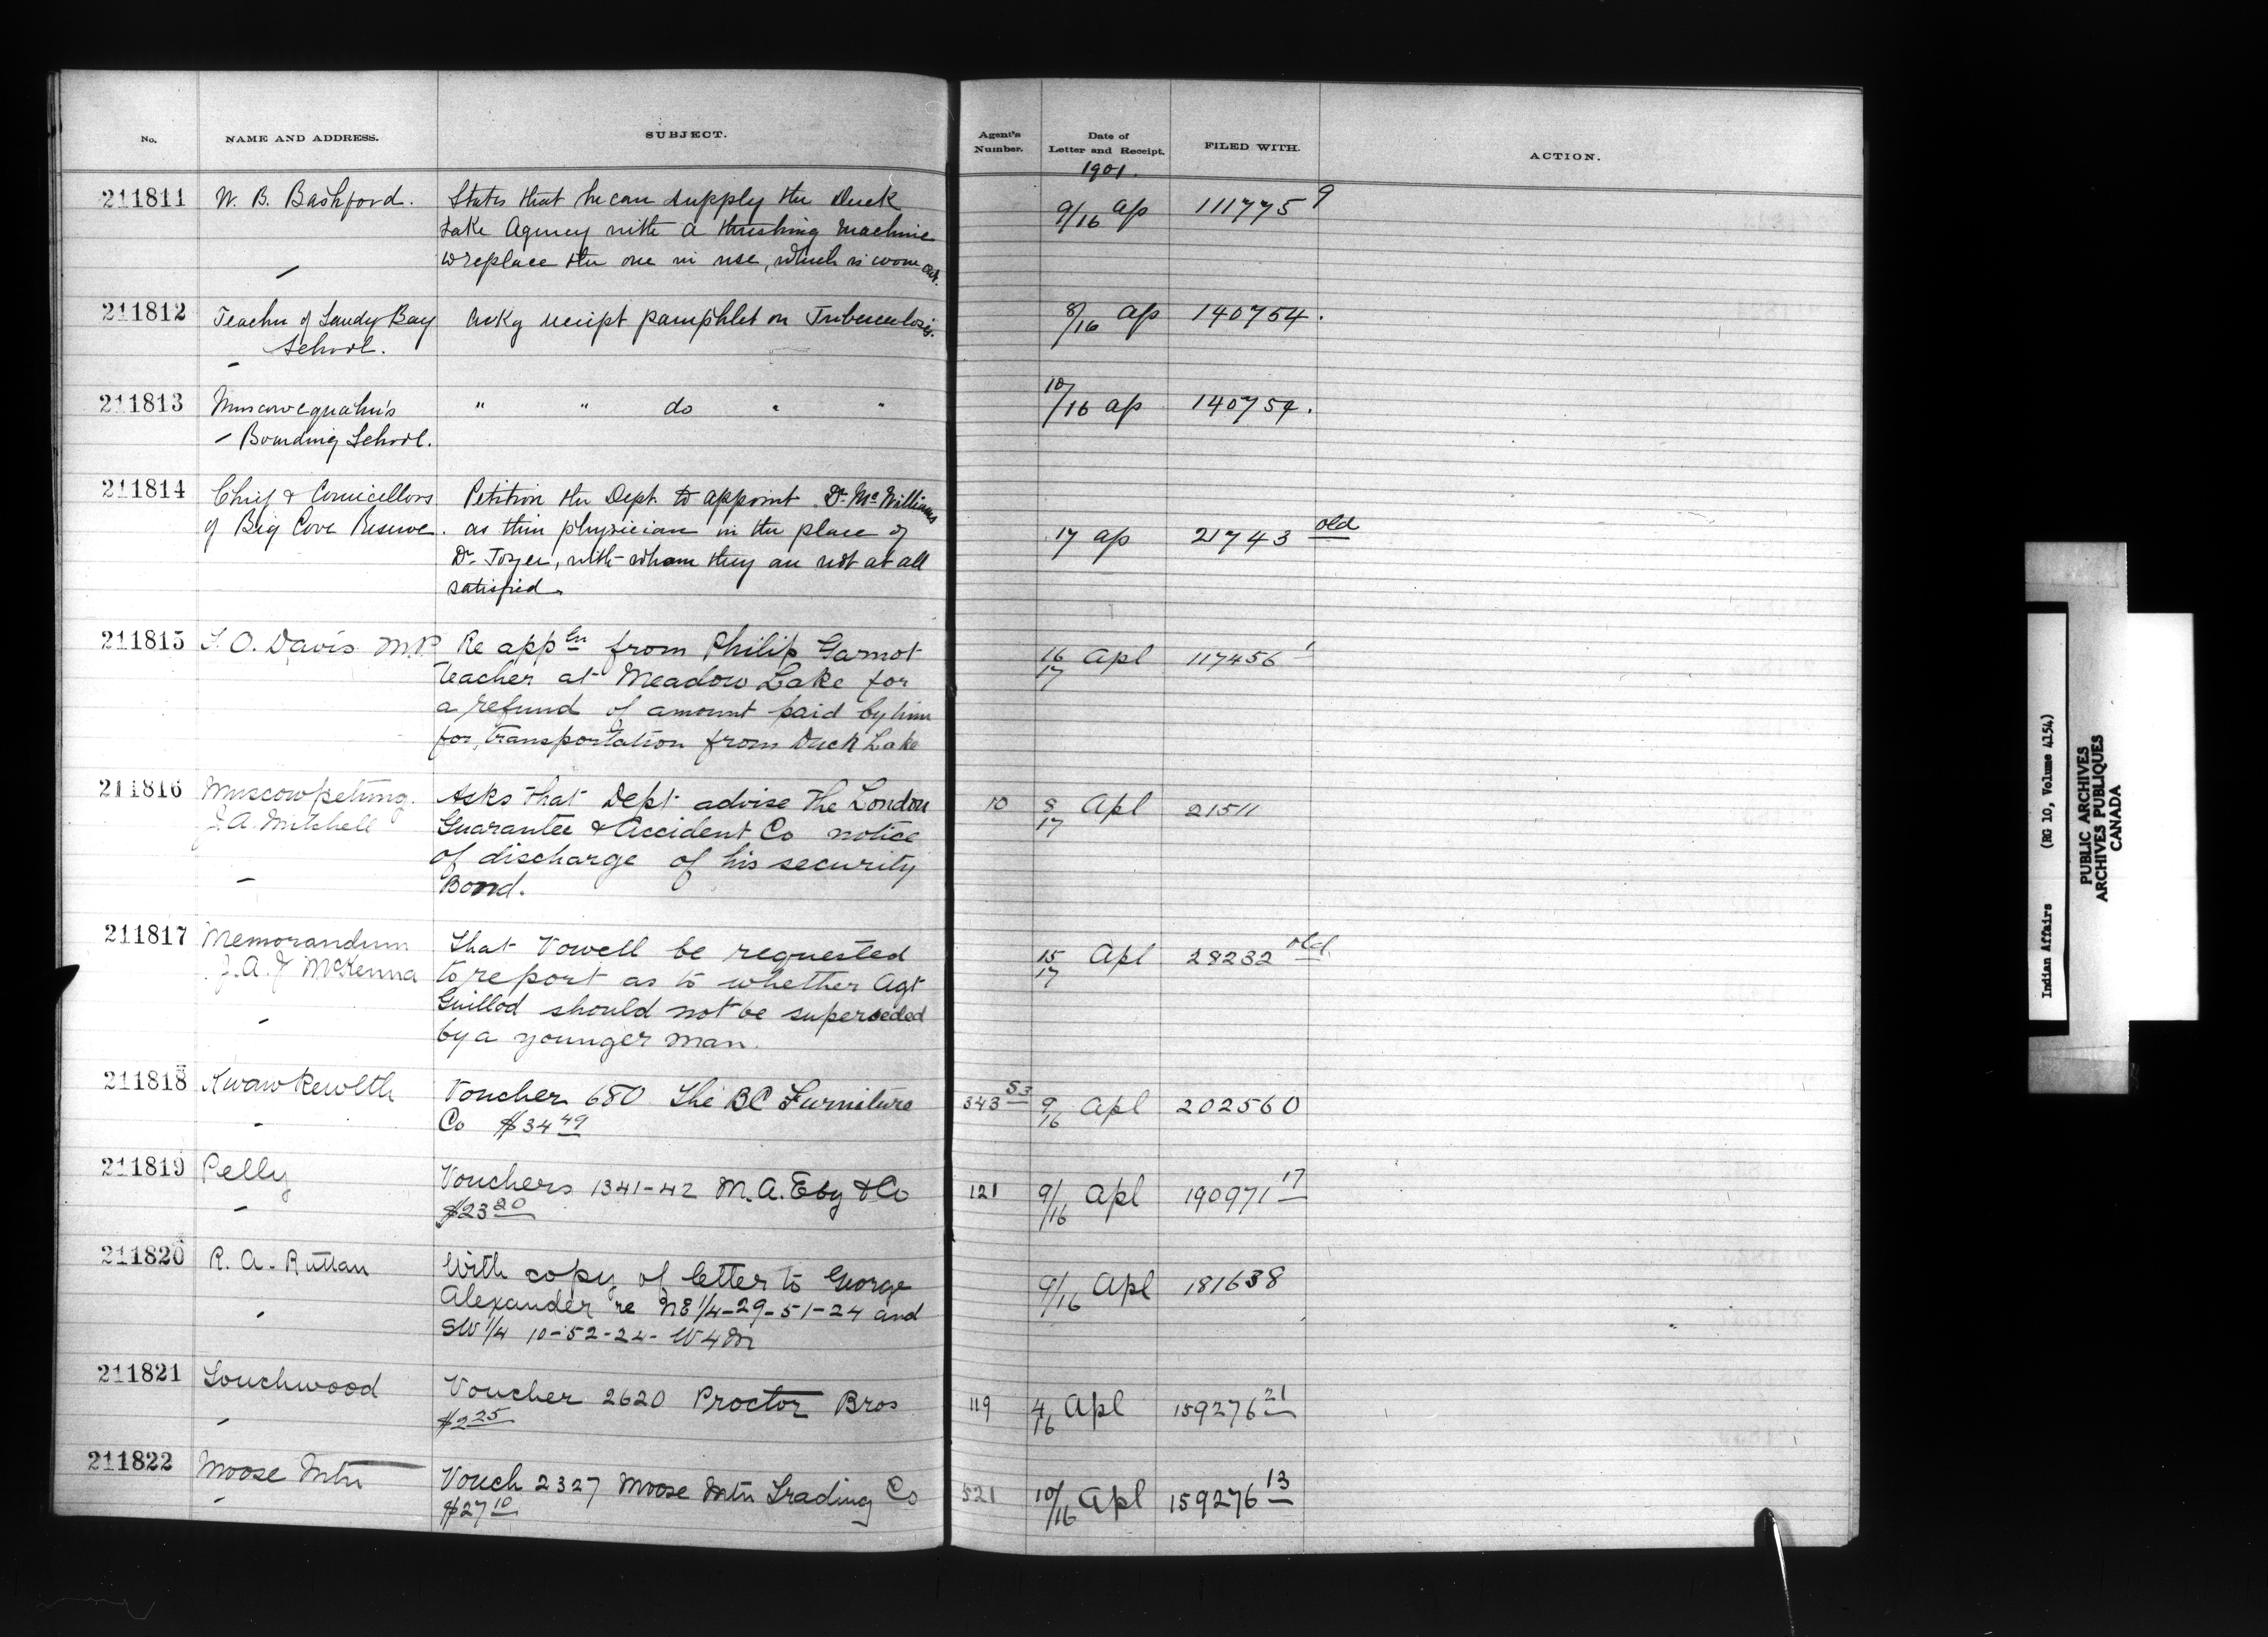 No.
NAME AND ADDRESS.
SUBJECT.
Agent's Number.
Date of Letter and Receipt.
FILED WITH.
ACTION.
1901.
211811
W. B. Bashford.
States that he can supply the Duck
Lake Agency with a threshing machine
to replace the one in use, which is worn out.
9/16 ap
111775 9
211812
Teacher of Sandy Bay
School.
Ackg receipt pamphlet on Tuberculosis.
8/16 ap
140754.
211813
Muscowequahn's
– Boarding School.
" " do " "
10/16 ap
140754.
211814
Chief & Councillors
of Big Cove Reserve.
Petition the Dept. to appoint Dr. McWilliams
as their physician in the place of
Dr. Tozer, with whom they are not at all
satisfied.
17 ap
21743 old
211815
T. O. Davis M.P.
Re appcn from Philip Garnot
teacher at Meadow Lake for
a refund of amount paid by him
for transportation from Duck Lake
16/17 Apl
117456 1
211816
Muscowpetung.
J. A. Mitchell
Asks that Dept advise the London
Guarantee & Accident Co notice
of discharge of his security
Bond.
10
8/17 Apl
21511
211817
Memorandum
J. A. J McKenna
That Vowell be requested
to report as to whether Agt
Guillod should not be superseded
by a younger man.
15/17 Apl
28232 old
211818
Kwawkewlth
Voucher 680 The BC Furniture
Co $34 49
343 53
9/16 Apl
202560
211819
Pelly
Vouchers 1341-42 M. A. Eby & Co
$23 20
121
9/16 Apl
190971 17
211820
R. A. Ruttan
With copy of letter to George
Alexander re NE 1/4-29-51-24 and
SW 1/4 10-52-24- W4M
9/16 Apl
181638
211821
Touchwood
Voucher 2620 Proctor Bros
$2 25
119
4/16 Apl
159276 21
211822
Moose Mtn
Vouch 2327 Moose Mtn Trading Co
$27 10
521
10/16 Apl
159276 13
Indian Affairs (RG 10, Volume 4154)
PUBLIC ARCHIVES
ARCHIVES PUBLIQUES
CANADA